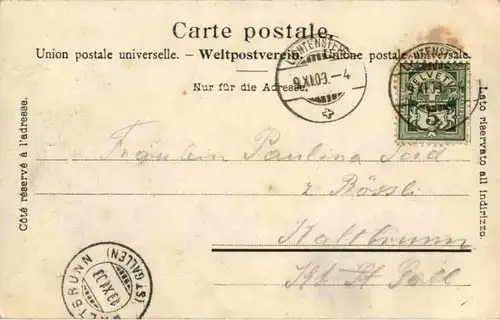 Carte postale.
Union postale universelle. – Weltpostverein. – Unione postale universale.
Nur für die Adresse.
Côté réservé à l'adresse.
Lato riservato all indirizzo.
LICHTENSTEIG
9.XI.03.–4
LICHTENSTEIG
XI.03.
HELVETIA
5
Fräulein Paulina
z Rössli
Kaltbrunn
Kt. St. Gall
KALTBRUNN
(ST. GALLEN)
10.XI.03